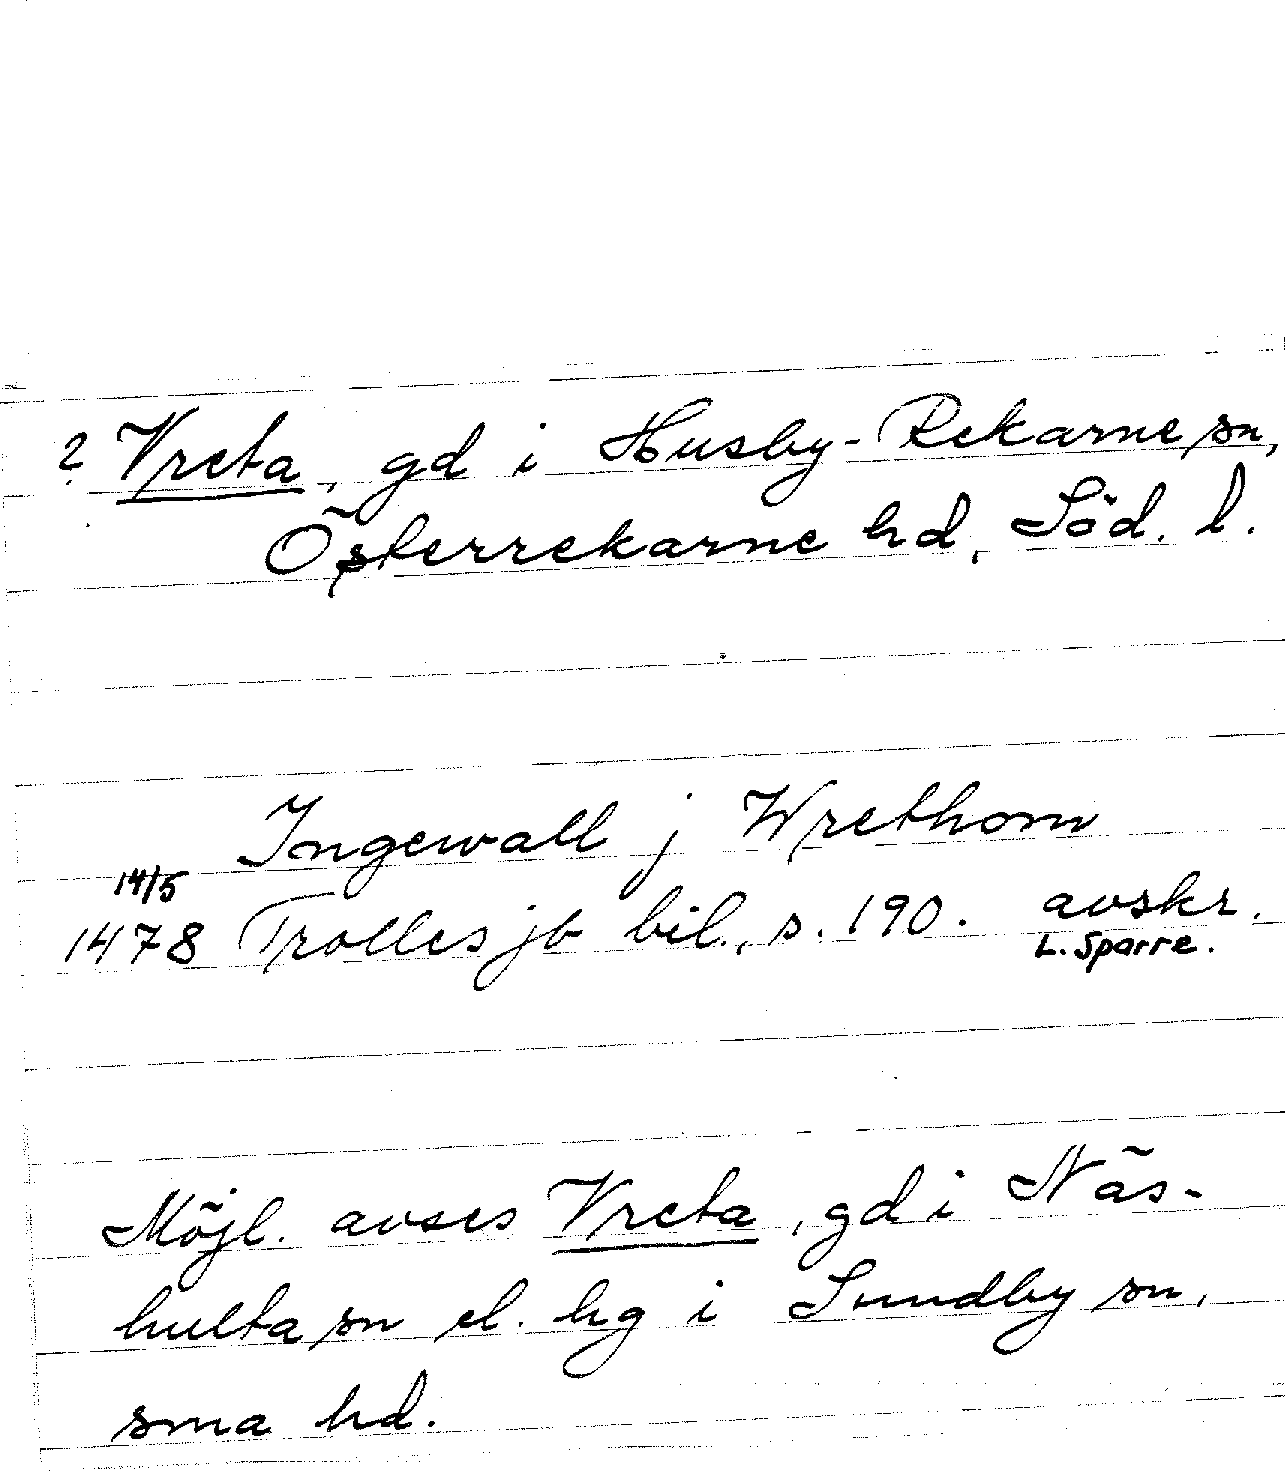 ? Vreta, gd i Husby-Rekarne sn,
Österrekarne hd, Söd. l.
Ingewall j Wrethom
14/5
1478 Trolles jb bil., s. 190. avskr.
L. Sparre.
Möjl. avses Vreta, gd i Näs-
hulta sn el. hg i Sundby sn,
sma hd.